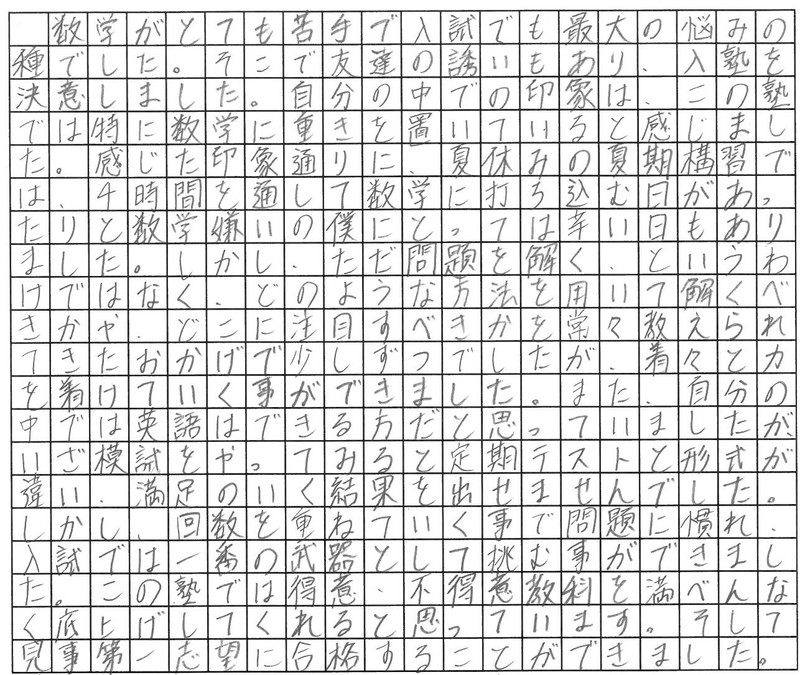 数学がとても苦手で入試でも最大の悩みの
種でした。そこで友達の誘いもあり、入塾を
決意しました。自分の中での印象は、この塾
では特に数学に重きを置いていると感じまし
た。感じた印象通りに、夏休みの夏期構習で
は、4時間を通して数学に打ち込む日があっ
たりと数学嫌いの僕にとっては辛い日もあり
ました。しかし、ただ問題を解く、というわ
けではなく、どのような方法を用いて解くべ
きかや、どこに注目すべきかを常々教えられ
てきたおかげで少しずつでしたが、着々と力
を着けていく事ができました。また、自分の
中では英語はできる方だと思っていましたが、
いざ模試をやってみると定期テストと形式が
違い、満足のいく結果を出せませんでした。
しかし、回数を重ねていく事で問題に慣れ、
入試では一番の武器として挑む事ができまし
た。この塾では得意、不得意教科を満べんな
く底上げしてくれると思っています。そして
見事第一志望に合格することができました。